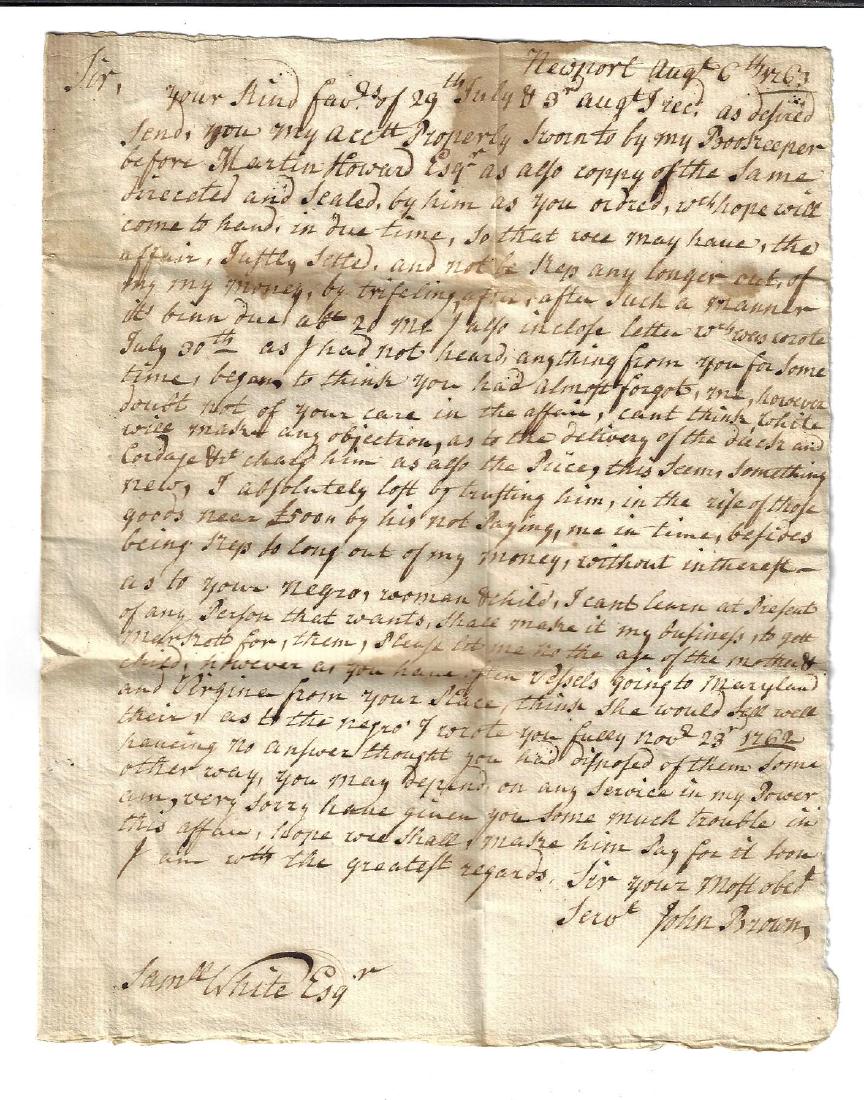 Newport Augt 6th 1763
Sir,
Your Kind favrs of 29th July & 3rd augt I recd. as desired
Send, you my acctt Properly Sworn to by my Bookeeper
before Martin Howard Esqr as also coppy of the Same
directed and Sealed, by him as you ordred, wch hope will
come to hand, in due time, So that wee may have, the
affair, Justly, Setled, and not be Kep any longer out, of
my my money, by trifeling, affair, after Such a manner
its binn due abt 20 Mo I also inclose letter wch was wrote
July 30th as I had not heard, anything from you for Some
time, began, to think you had almost forgot, me, however
doubt not of your care in the affair, cant think, White
will make any objection, as to the delivery of the duck and
Cordage &c chard him as also the Price, this Seem, Something
new, I absolutely lost by trusting him, in the rise of those
goods near £500 by his not Paying, me in time, besides
being Kep So long out of my money, without intherest
as to your negro, woman & child, I cant learn at Present
of any Person that wants, Shall make it my business, to gett
Markett for, them, Please let me no the age of the mother &
child, however as you have often vessels going to Maryland
and Virginea from your Place, think She would Sell well
their, as to the negro I wrote you fully novr 23r 1762
haveing no answer thought you had disposed of them Some
other way, you may depend, on any Service in my Power
am, very Sorry have given you Some much trouble in
this affair, hope wee Shall, make him Pay for it Soon
I am wth the greatest regards, Sir your Most obedt
Servt John Brown,
Samll White Esqr